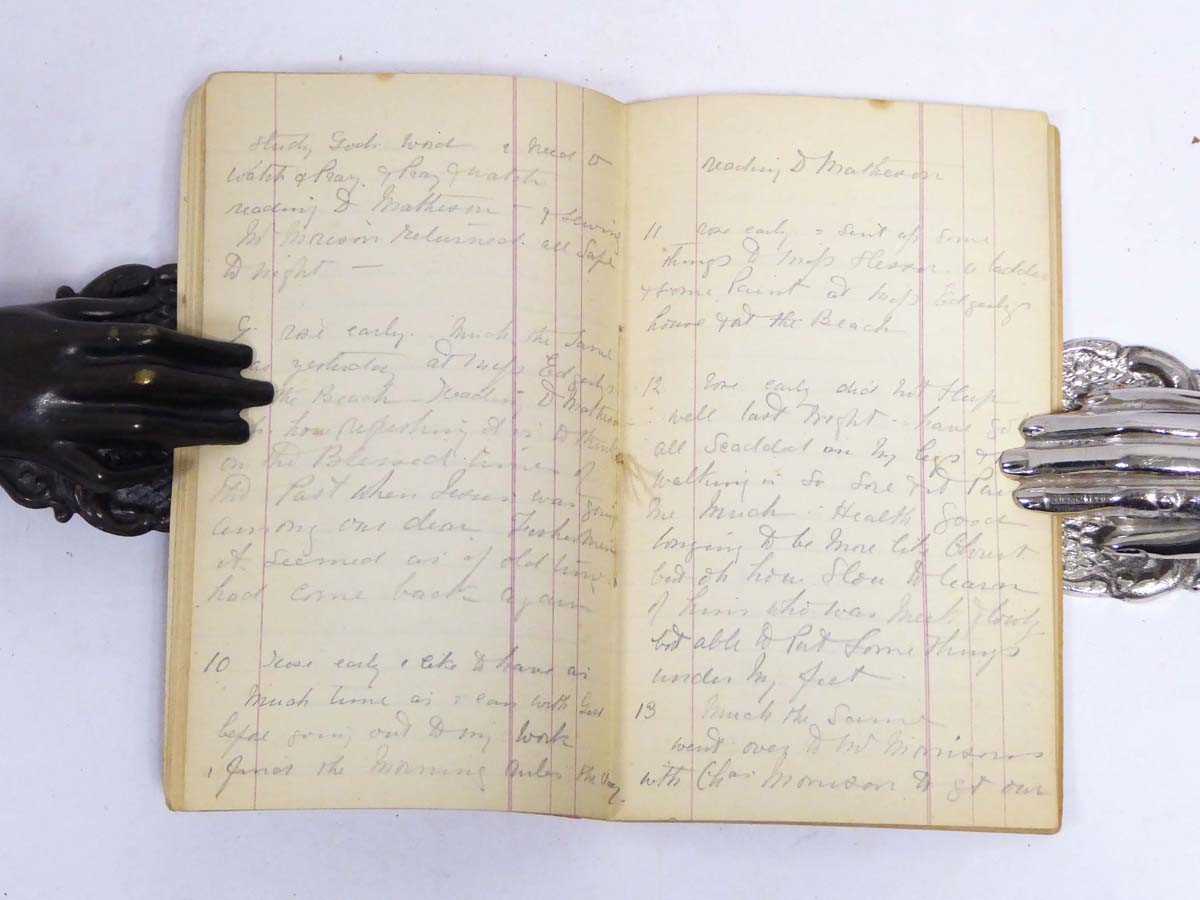 study Gods word & need to
watch & Pray & Pray & watch
reading D Matheson — & Sewing
Mr Morison returned all Safe
to night —
9 rose early. Much the Same
as yesterday at Miss Edgerlys
the Beach Reading D Matheson
how refreshing it is to think
on the Blessed times of
the Past when Jesus was going
among our dear Fishermen
it Seemed as if old time
had come back again
10 Rose early i like to have as
Much time as i can with God
before going out to my work
i find the Morning rules the day
reading D Matheson
11 rose early & Sent up Some
things to Miss Slessor a ladder
& some Paint at Miss Edgerlys
house & at the Beach
12 rose early did not Sleep
well last Night have got
all Scadded on My legs &
walking is So Sore &
Me Much. Health Good
longing to be More like Christ
but oh how Slow to learn
of him who was Meek & lowly
but able to Put Some things
under My feet.
13 Much the Same
went over to Mr Morisons
with Chas Morrison to get our